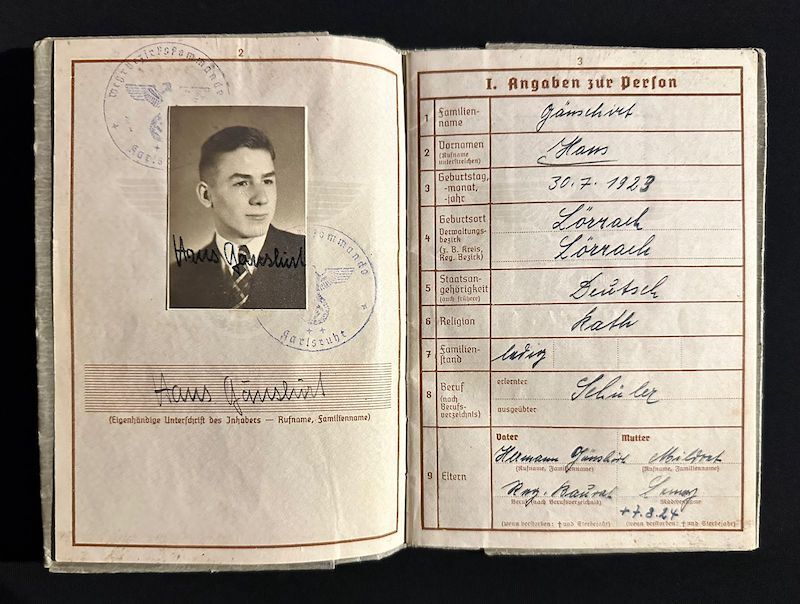 2
Wehrbezirkskommando
Hans Gänshirt
kommando
Karlsruhe
Hans Gänshirt
(Eigenhändige Unterschrift des Inhabers — Rufname, Familienname)
3
I. Angaben zur Person
1 Familien-
name
Gänschirt
2 Vornamen
(Rufname
unterstreichen)
Hans
3 Geburtstag,
-monat,
-jahr
30.7.1923
4 Geburtsort
Verwaltungs-
bezirk
(z. B. Kreis,
Reg. Bezirk)
Lörrach
Lörrach
5 Staatsan-
gehörigkeit
(auch frühere)
Deutsch
6 Religion
kath
7 Familien-
stand
ledig
8 Beruf
(nach
Berufs-
verzeichnis)
erlernter
Schüler
ausgeübter
9 Eltern
Vater Mutter
Hermann Gänshirt
(Rufname, Familienname) (Rufname, Familienname)
Reg. Baurat
Beruf (nach Berufsverzeichnis) Mädchenname
++ 7.8.24
(wenn verstorben: † und Sterbejahr) (wenn verstorben: † und Sterbejahr)